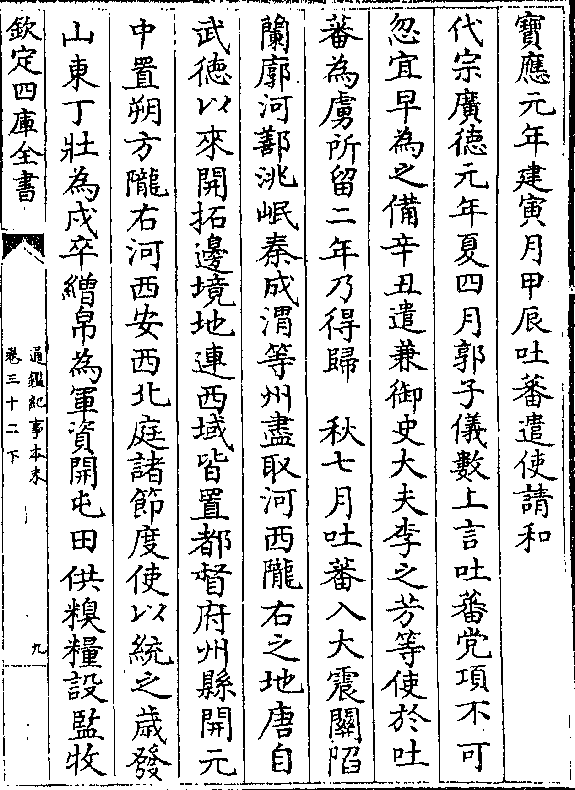 寶應元年建寅月甲辰吐蕃遣使請和
代宗廣德元年夏四月郭子儀數上言吐蕃党項不可
忽宜早為之備辛丑遣兼御史大夫李之芳等使於吐
蕃為虜所留二年乃得歸　秋七月吐蕃入大震關陷
蘭廓河鄯洮岷秦成渭等州盡取河西隴右之地唐自
武徳以來開拓邊境地連西域皆置都督府州縣開元
中置朔方隴右河西安西北庭諸節度使以統之歳發
山東丁壯為戍卒繒帛為軍資開屯田供糗糧設監牧
欽定四庫全書
通鑑紀事本末
卷三十二下
九